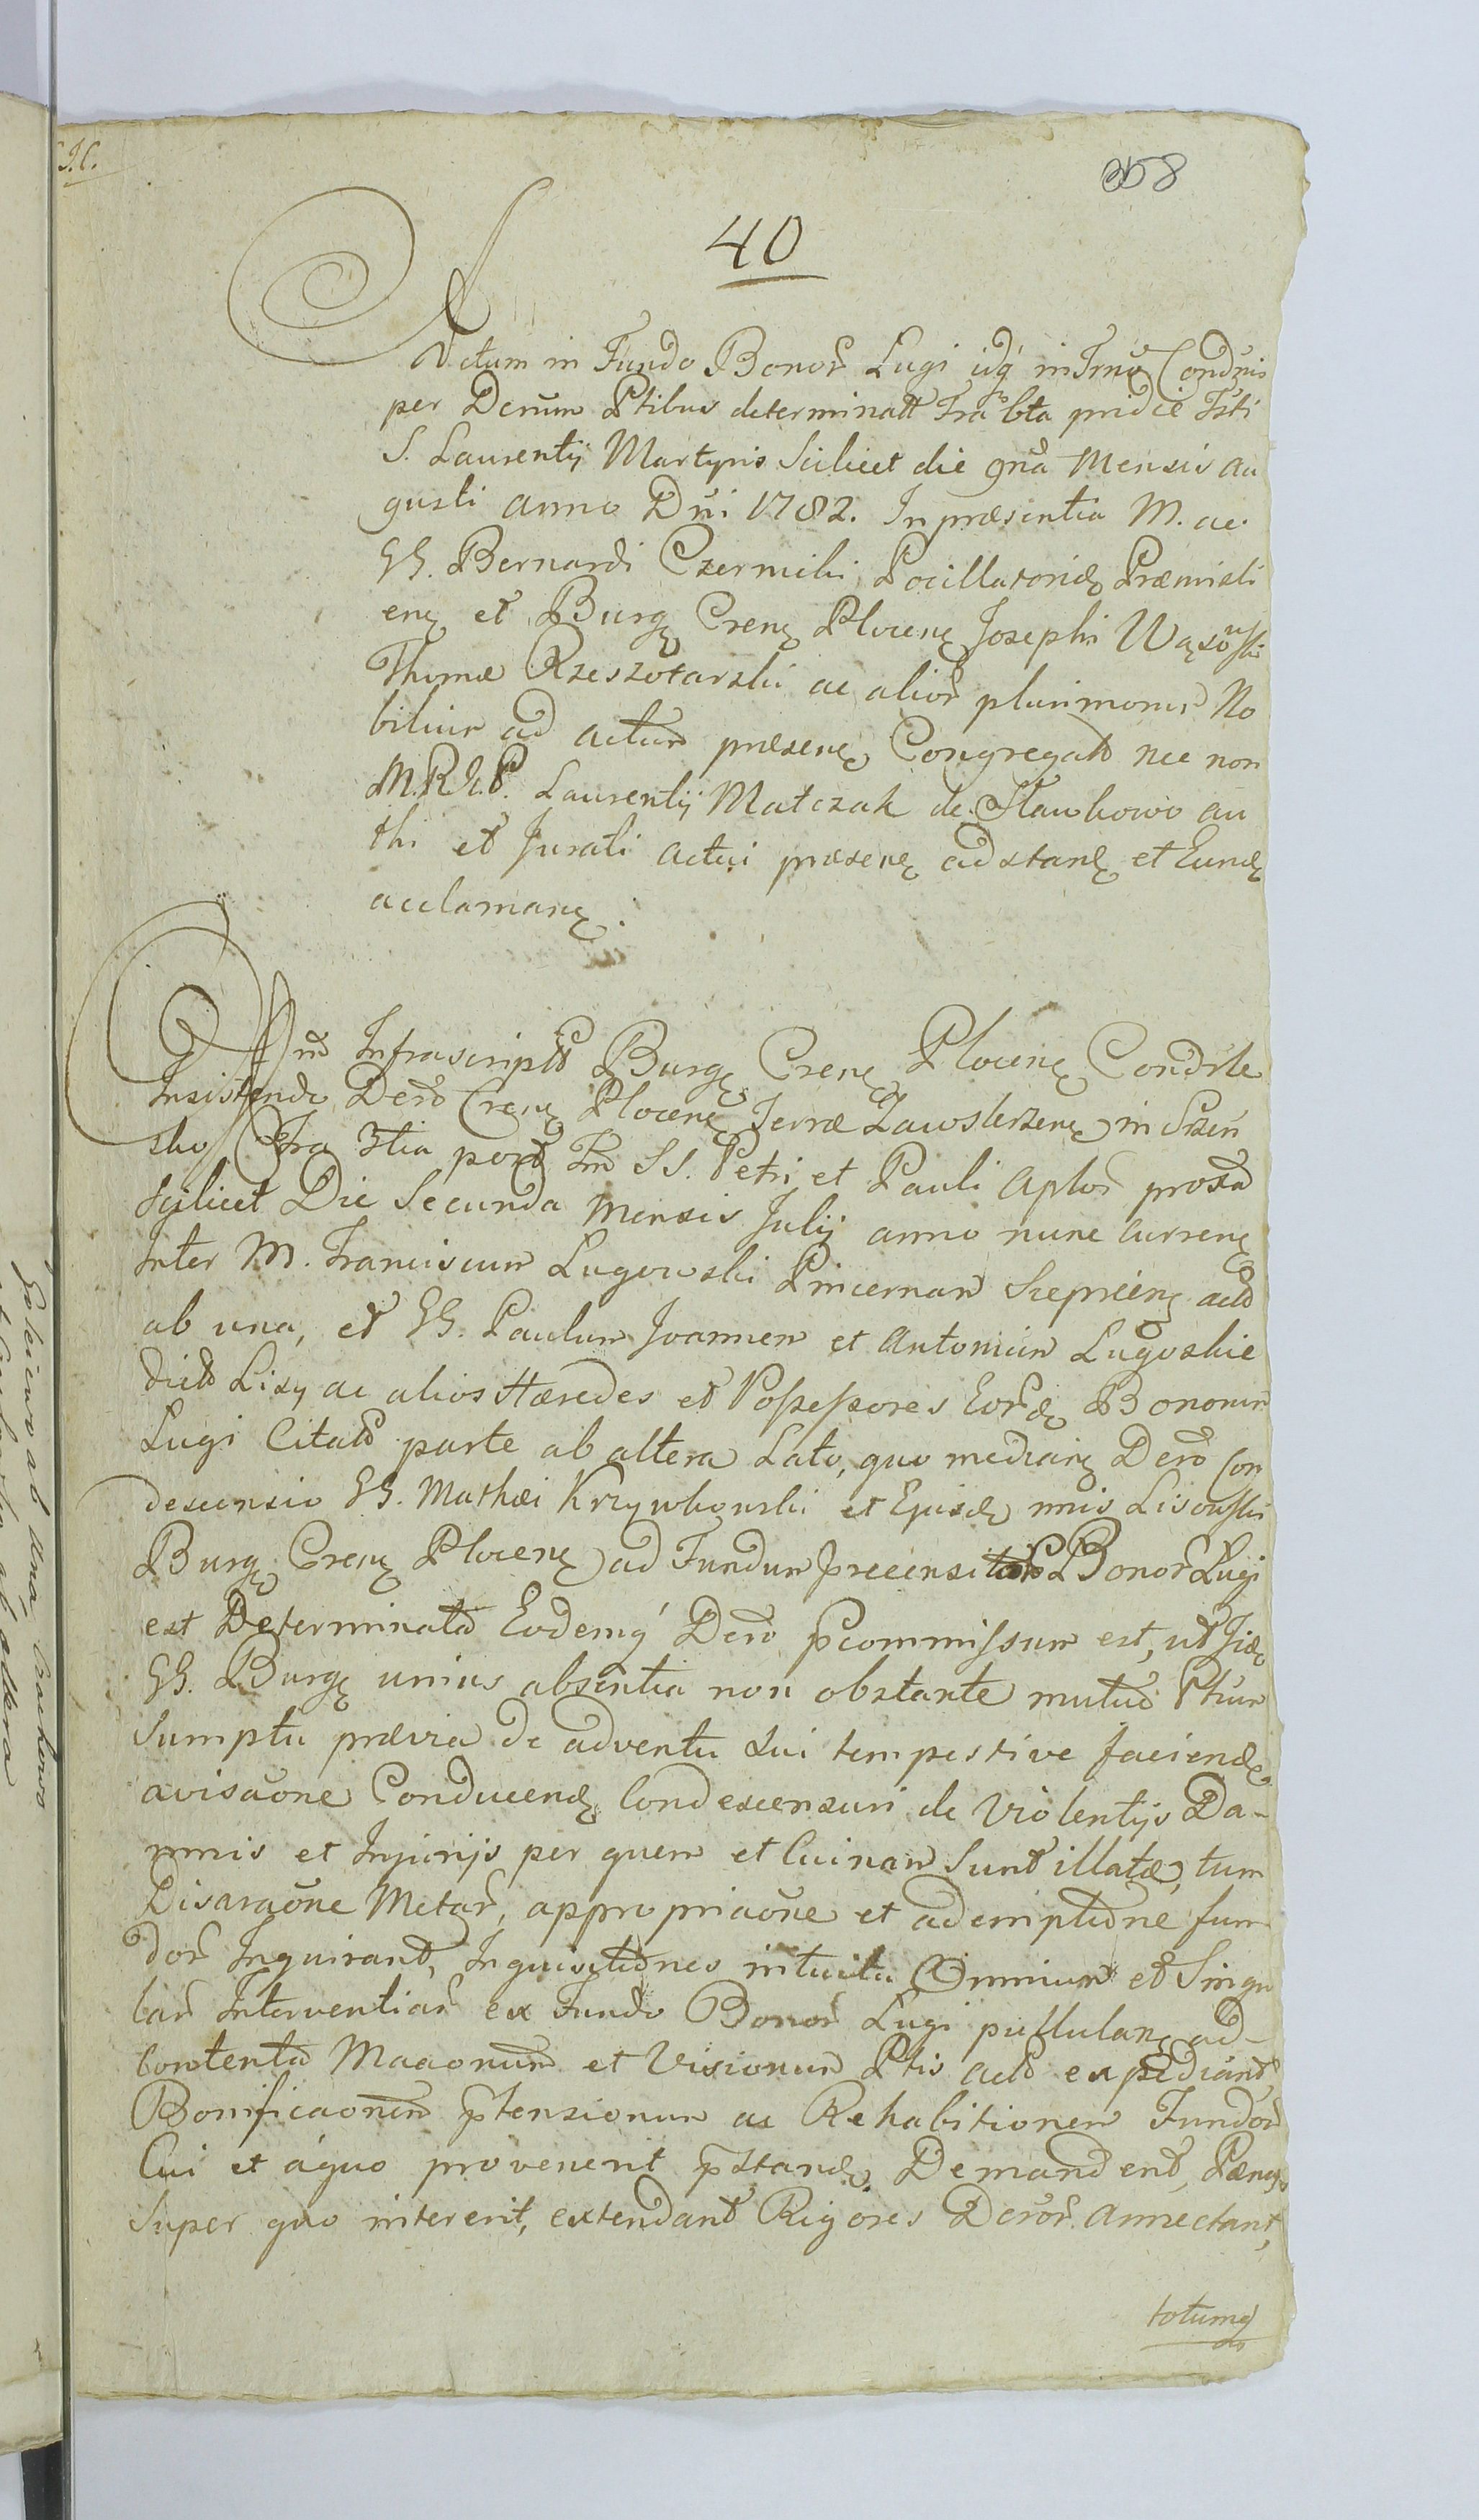 J. C.
358
40
Actum in Fundo Bonor̃ Lugi idq́ in Trno Condnis
per Decrum Ptibus determinatt Fra 6ta pridie Fsti
S. Laurentÿ Martyris Scilicet die 9na Mensis Au
gusti anno Dni 1782. In præsentia M. ac
GG. Bernardi Czermiki Pocillatoridę Præmisli
enę et Burgę Crenę Plocenę Josephi Wąsowski
Thomæ Rzeszotarski ac alior̃ plurimorum No
bilium ad actum præsenę Congregatt nec non
Laurentÿ Matczak de Sławkowo au
thi et Jurati actui præsenę adstandę et Eundę
acclamanę.
Jud Infrascriptt Burgę Crenę Plocenę Condrle
Insistendo Dero Crenę Plocenę Terræ Zawskrzenę in Srzeń
sko Fra 3tia post Fm SS. Petri et Pauli Aplor̃ proxa
scilicet Die Secunda Mensis Julÿ anno nunc currenę
Inter M. Franciscum Lugowski Pincernam Sieprcenę actt
ab una, et GG. Paulum Joannem et Antonium Lugoskie
dictt Lisy ac alios Hæredes et Possessores Eor̃dę Bonorum
Lugi Citatt parte ab altera Lato, quo medianę Dero con
descensio GG. Mathæi Krzywkowski et Episdę nnis Lisowski
Burgę Crenę Plocenę ad Fundum præcensitor̃ Bonor̃ Lugi
est Determinata Eodemq́ Dero p̃commissum est, ut Jidę
GG. Burgę unius absentia non obstante mutuo Ptium
Sumptu prævia de adventu sui tempestive faciendę
avisaone Conducendę Condescensuri de Violentÿs Da-
mnis et Injurÿs per quem et Cuinam sunt illatæ, tum
Disaraone Metar̃, appropriaone et ademptione fun
dor̃ Inquirant, Inquisitiones intuitu Omnium et Singu
lar̃ Interventiar̃ ex Fundo Bonor̃ Lugi pullulanę ad-
Contenta Maaonum et Visionum Ptis actt expediant
Bonificaonem p̃tensionum ac Rehabitionem Fundor̃
Cui et áquo provenerit p̃standę Demandent, Pænas
Super quo intererit, extendant Rigores Deror̃ annectant,
totumq́
Gościewo ab una,
ab altera